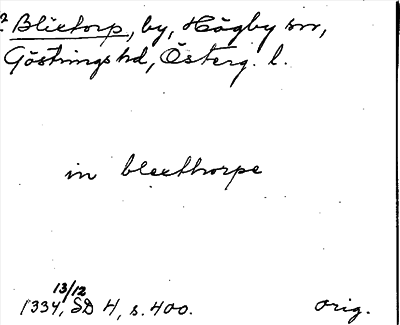 ? Blietorp, by, Högby sn,
Göstrings hd, Österg. l.
in bleethorpe
13/12
1334, SD 4, s. 400. orig.